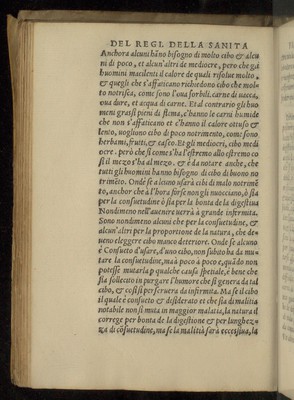 DEL REGI. DELLA SANITA
Anchora alcuni hãno bisogno di molto cibo & alcu
ni di poco, et alcun'altri de mediocre, pero che gli
huomini macilenti il calore de quali risolue molto,
& quegli che s'affaticano richiedono cibo che mol
to notrisca, come sono l'oua sorbili, carne di uacca,
oua dure, et acqua di carne. Et al contrario gli huo
meni grassi pieni di flema, c'hanno le carni humide
che non s'affaticano et c'hanno il calore ottuso &
lento, uogliono cibo di poco notrimento, come sono
herbami, frutti, & casco. Et gli mediocri, cibo medi
ocre: però che si come s'ha l'estremo allo estremo co
si il mezo s'ha al mezo. & è da notare anche, che
tutti gli huomini hanno bisogno di cibo di buono no
trimẽto. Onde se alcuno usarà cibi di malo notrimẽ
to, anchor che à l'hora forse non gli nuocciano, ò sia
per la consuetudine ò sia per la bonta de la digestiua
Nondimeno nell'auenire ucorrà à grande infirmita.
Sono nondimeno alcuni che per la consuetudine, &
alcun'altri per la proportione de la natura, che de-
ueno eleggere cibo manco deteriore. Onde se alcuno
è Consueto d'usare, d'uno cibo, non subito ha da mu-
tare la consuetudine, ma à poco à poco e, quãdo non
potesse mutarla p qualche causa spetiale, è bene che
sia sollecito in purgare l'humore che si genera da tal
cibo, & cosi si perseruera da infirmita. Ma se il cibo
il quale è consueto & desiderato et che sia di malitia
notabile non si muta in maggior malatia, la natura il
corregge per bonta de la digestione & per lunghez-
za di cõsuetudine, ma se la malitia sarà eccessiua, la